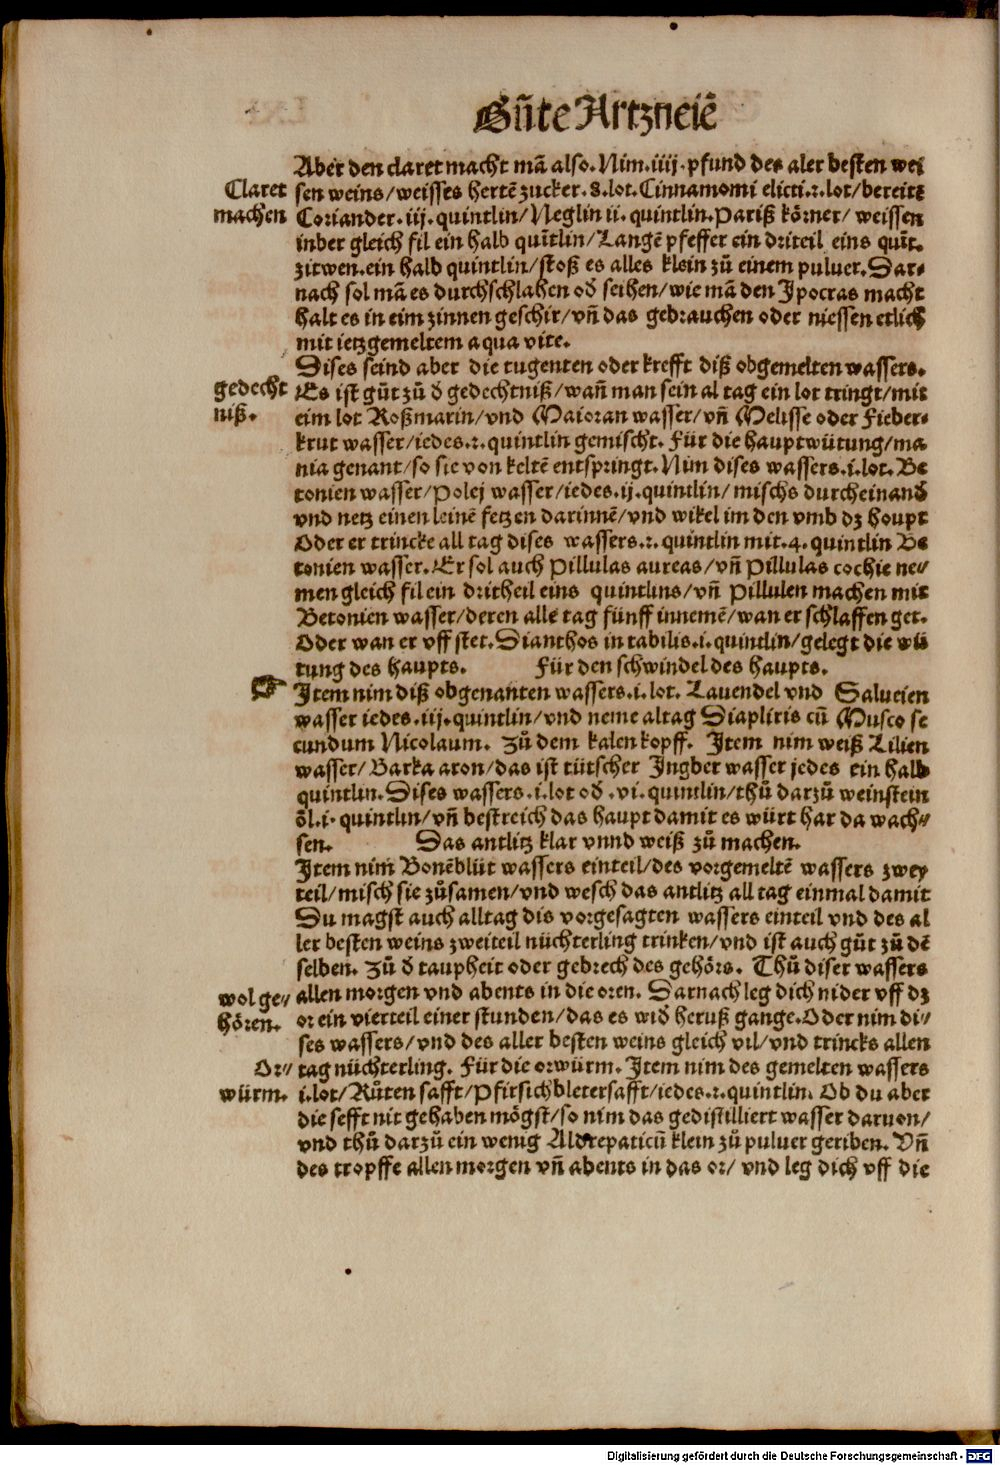 Gůte Artzneiē
Aber den claret macht mā also. Nim. iiij. pfund des aler besten wei
Claret
machen
sen weins/weisses hertē zucker. 8. lot. Cinnamomi elicti. ꝛ. lot/bereitē
Coriander. iij. quintlin/Neglin ii. quintlin. Pariß körner/ weissen
inber gleich fil ein halb quītlin/Langē pfeffer ein driteil eins quīt.
zitwen. ein halb quintlin/stoß es alles klein zů einem puluer. Dar-
nach sol mā es durchschlahen od̄ seihen/wie mā den Jpocras macht
halt es in eim zinnen geschir/vñ das gebrauchen oder niessen etlich
mit ietzgemeltem aqua vite.
Dises seind aber die tugenten oder krefft diß obgemelten wassers.
gedecht
niß.
Es ist gůt zů d̄ gedechtniß/wañ man sein al tag ein lot tringt/mit
eim lot Roßmarin/vnd Maioran wasser/vñ Melisse oder Fieber-
krut wasser/iedes. ꝛ. quintlin gemischt. Für die hauptwütung/ma
nia genant/so sie von keltē entspringt. Nim dises wassers. i. lot. Be
tonien wasser/Polej wasser/iedes. ij. quintlin/ mischs durcheinand̄
vnd netz einen leinē fetzen darinnē/vnd wikel im den vmb dz houpt
Oder er trincke all tag dises wassers. ꝛ. quintlin mit. 4. quintlin Be
tonien wasser. Er sol auch Pillulas aureas/vñ Pillulas cochie ne-
men gleich fil ein dritheil eins quintlins/vñ Pillulen machen mit
Betonien wasser/deren alle tag fünff innemē/wan er schlaffen get.
Oder wan er vff stet. Dianthos in tabilis. i. quintlin/gelegt die wü
tung des haupts. Für den schwindel des haupts.
Jtem nim diß obgenanten wassers. i. lot. Lauendel vnd Salueien
wasser iedes. iij. quintlin/vnd neme altag Diapliris cū Musco se
cundum Nicolaum. Zů dem kalen kopff. Jtem nim weiß Lilien
wasser/Barka aron/das ist tütscher Jngber wasser jedes ein halb
quintlin. Dises wassers. i. lot od̄. vi. quintlin/thů darzů weinstein
öl. i. quintlin/vñ bestreich das haupt damit es würt har da wach-
sen. Das antlitz klar vnnd weiß zů machen.
Jtem nim Bonēblüt wassers einteil/des vorgemeltē wassers zwey
teil/misch sie zůsamen/vnd wesch das antlitz all tag einmal damit
Du magst auch alltag dis vorgesagten wassers einteil vnd des al
ler besten weins zweiteil nüchterling trinken/vnd ist auch gůt zů dē
selben. Zů d̄ taupheit oder gebrech des gehörs. Thů diser wassers
wol ge-
hören.
allen morgen vnd abents in die oren. Darnach leg dich nider vff dz
or ein vierteil einer stunden/das es wid̄ heruß gange. Oder nim di-
ses wassers/vnd des aller besten weins gleich vil/vnd trincks allen
Or-
würm.
tag nüchterling. Für die orwürm. Jtem nim des gemelten wassers
i. lot/Růten safft/Pfirsichbletersafft/iedes. ꝛ. quintlin. Ob du aber
die sefft nit gehaben mögst/so nim das gedistilliert wasser daruon/
vnd thů darzů ein wenig Aloepaticū klein zů puluer geriben. Vñ
des tropffe allen morgen vñ abents in das or/ vnd leg dich vff die
Digitalisierung gefördert durch die Deutsche Forschungsgemeinschaft - DFG